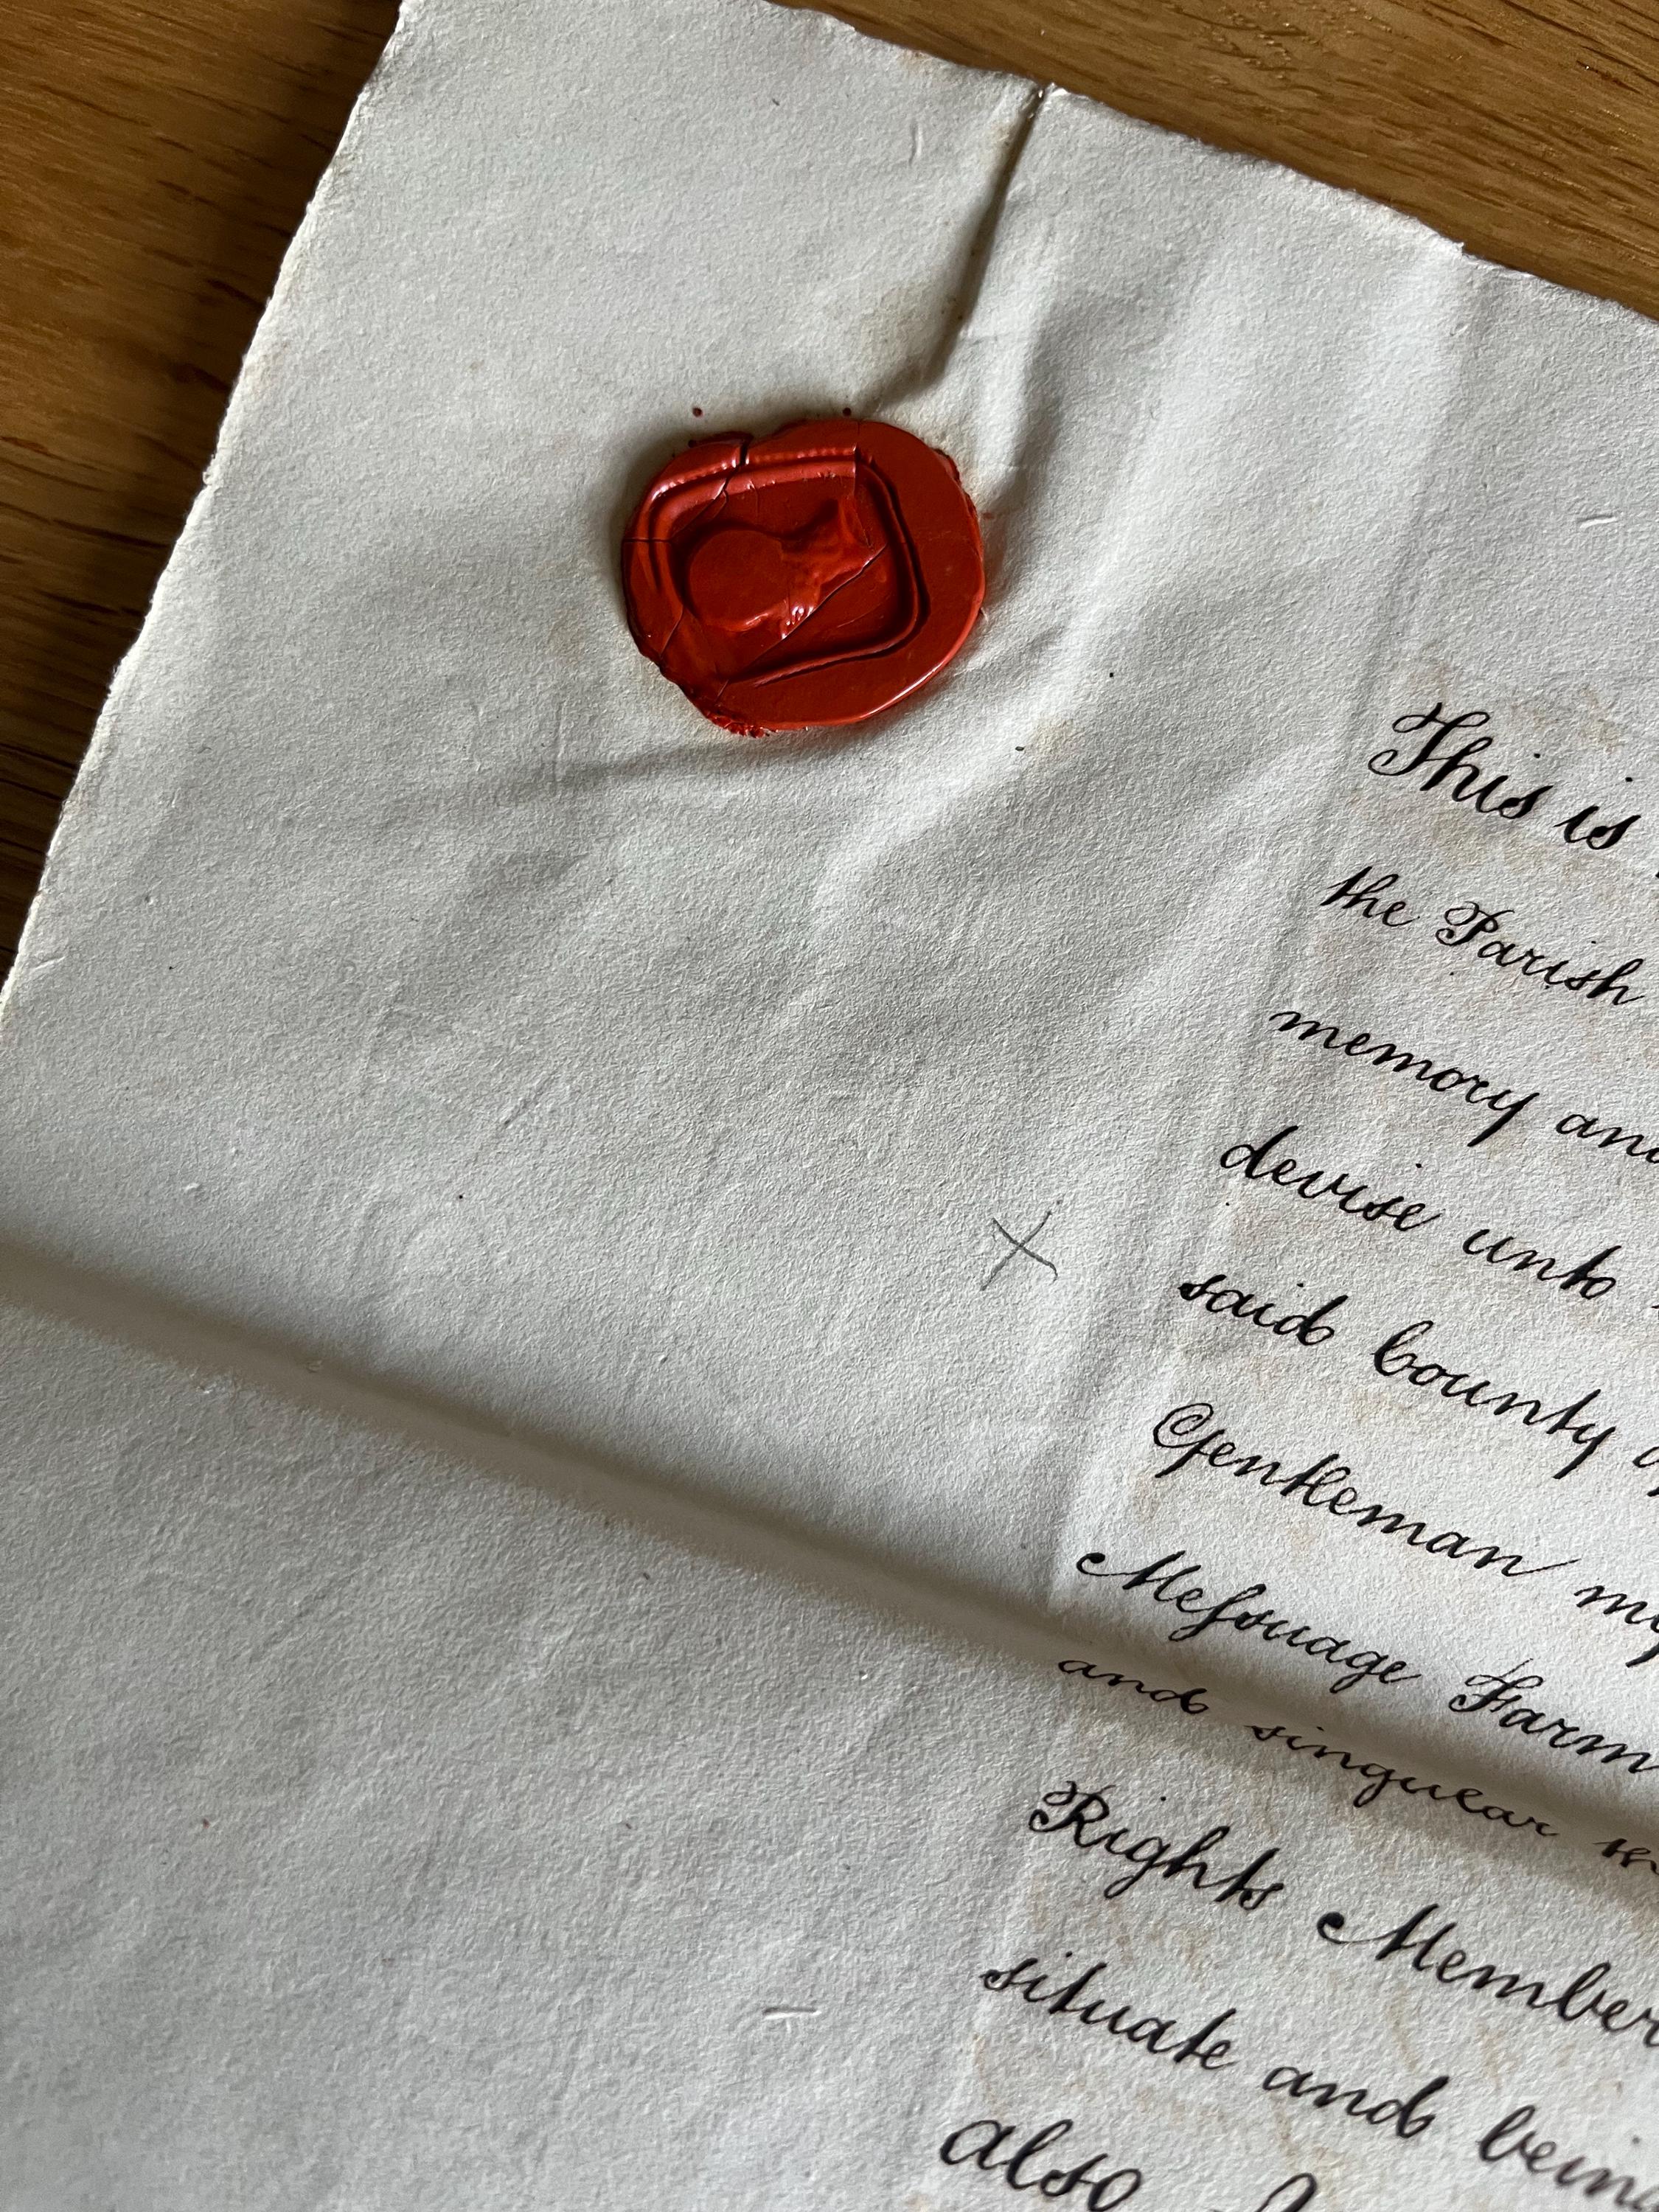 This is
the Parish
memory and
devise unto
said County of
Gentleman my
Meſsuage Farm
and singular the
Rights Member
situate and being
also